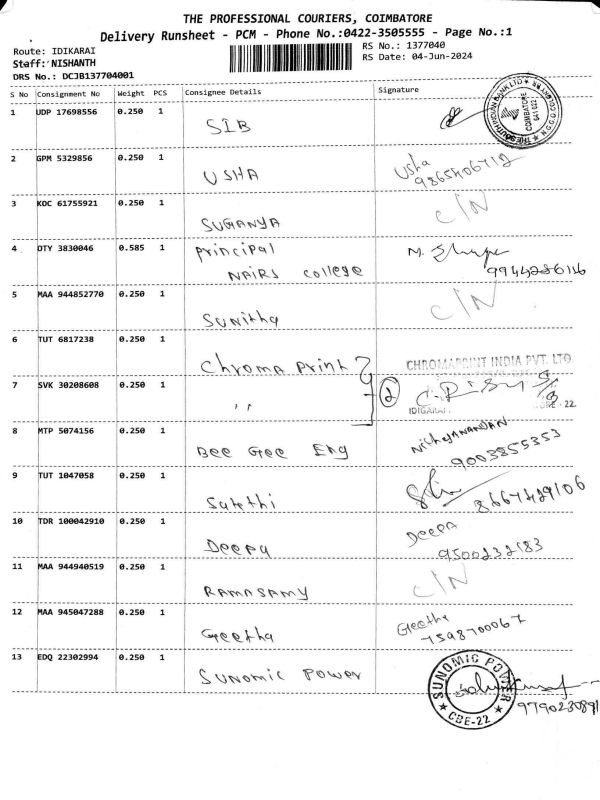 THE PROFESSIONAL COURIERS, COIMBATORE
Delivery Runsheet - PCM - Phone No.:0422-3505555 - Page No.:1
Route: IDIKARAI
RS No.: 1377040
Staff: NISHANTH
RS Date: 04-Jun-2024
DRS No.: DCJB137704001
S No Consignment No Weight PCS Consignee Details Signature
1 UDP 17698556 0.250 1 SIB
COIMBATORE
641 022
2 GPM 5329856 0.250 1 USHA Usha
9865406712
3 KOC 61755921 0.250 1 SUGANYA C/N
4 OTY 3830046 0.585 1 Principal
NAIRS College
M.
9944226146
5 MAA 944852770 0.250 1 Sunitha C/N
6 TUT 6817238 0.250 1 Chroma Print
CHROMAPRINT INDIA PVT. LTD
7 SVK 30208608 0.250 1 ,, 2
8 MTP 5074156 0.250 1 Bee Gee Eng NithyANANDAN
9003855353
9 TUT 1047058 0.250 1
8667429106
10 TDR 100042910 0.250 1 Deepa DeepA
9500232183
11 MAA 944940519 0.250 1 RAMASAMY C/N
12 MAA 945047288 0.250 1 Geetha Geetha
7598700067
13 EDQ 22302994 0.250 1 Sunomic Power
SUNOMIC POWER
CBE-22
9790230891